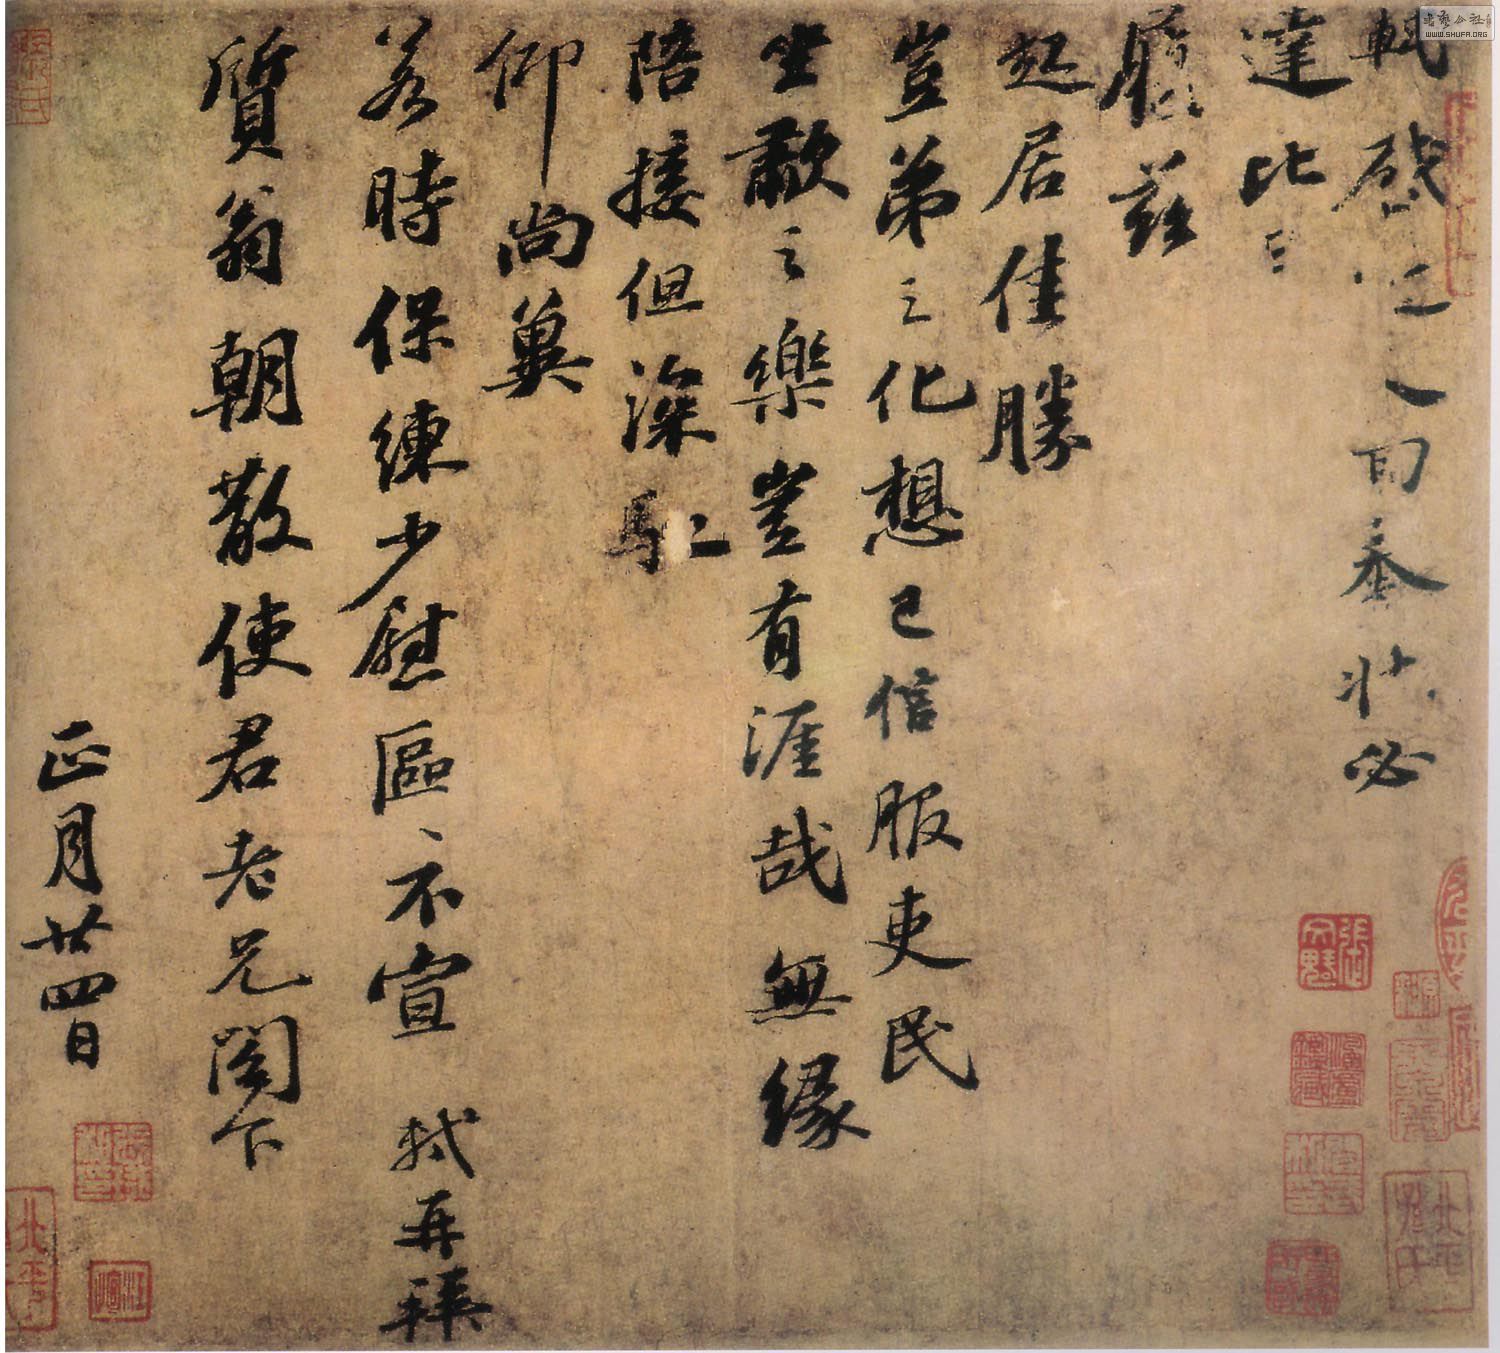 軾啟近人回奉狀必
達比〻
履茲
起居佳勝
豈弟之化想已信服吏民
坐歗之樂豈有涯哉無緣
陪接但深馳
仰尚冀
若時保練少慰區〻不宣 軾再拜
質翁朝散使君老兄閣下
正月廿四日
WWW.SHUFA.ORG